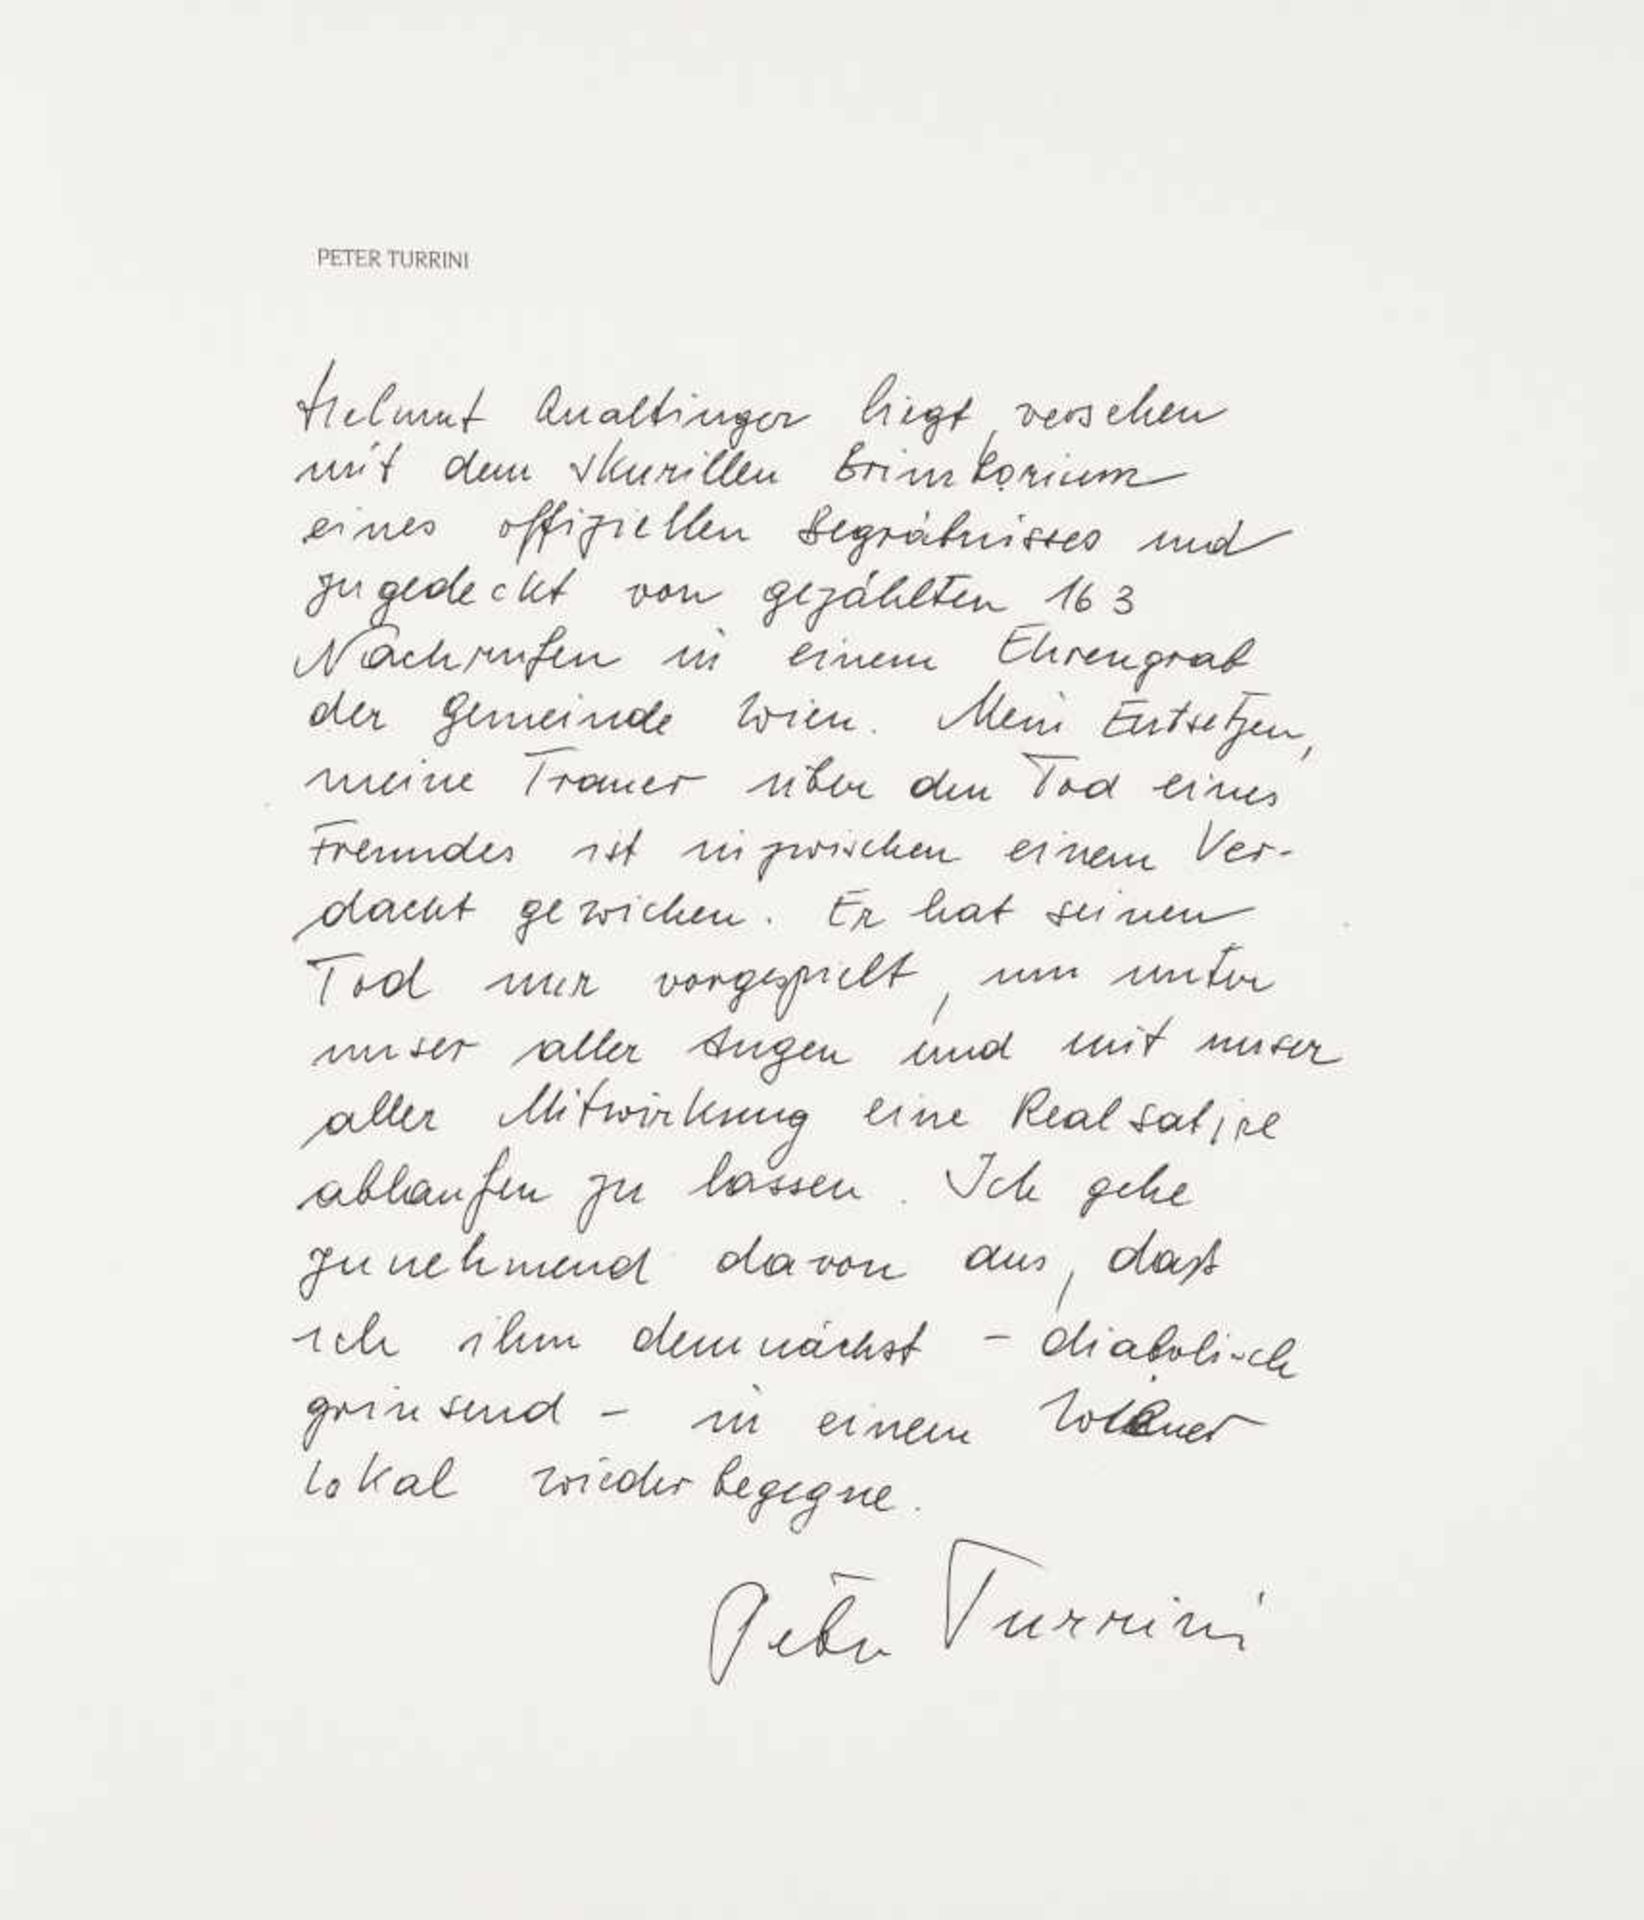 PETER TURRINI
Helmut Qualtinger liegt, versehen
mit dem skurillen Brimborium
eines offiziellen Begräbnisses und
zugedeckt von gezählten 163
Nachrufen in einem Ehrengrab
der Gemeinde Wien. Mein Entsetzen,
meine Trauer über den Tod eines
Freundes ist inzwischen einem Ver-
dacht gewichen. Er hat seinen
Tod nur vorgespielt, um unter
unser aller Augen und mit unser
aller Mitwirkung eine Realsatire
ablaufen zu lassen. Ich gehe
zunehmend davon aus, daß
ich ihm demnächst – diabolisch
grinsend – in einem Wiener
Lokal wiederbegegne.
Peter Turrini